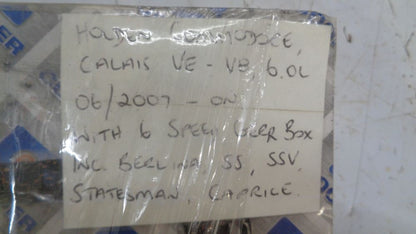 HOLDEN COMMODORE,
CALAIS VE - V8, 6.0L
06/2007 - ON
WITH 6 SPEED GEAR BOX
INC. BERLINA, SS, SSV,
STATESMAN, CAPRICE.